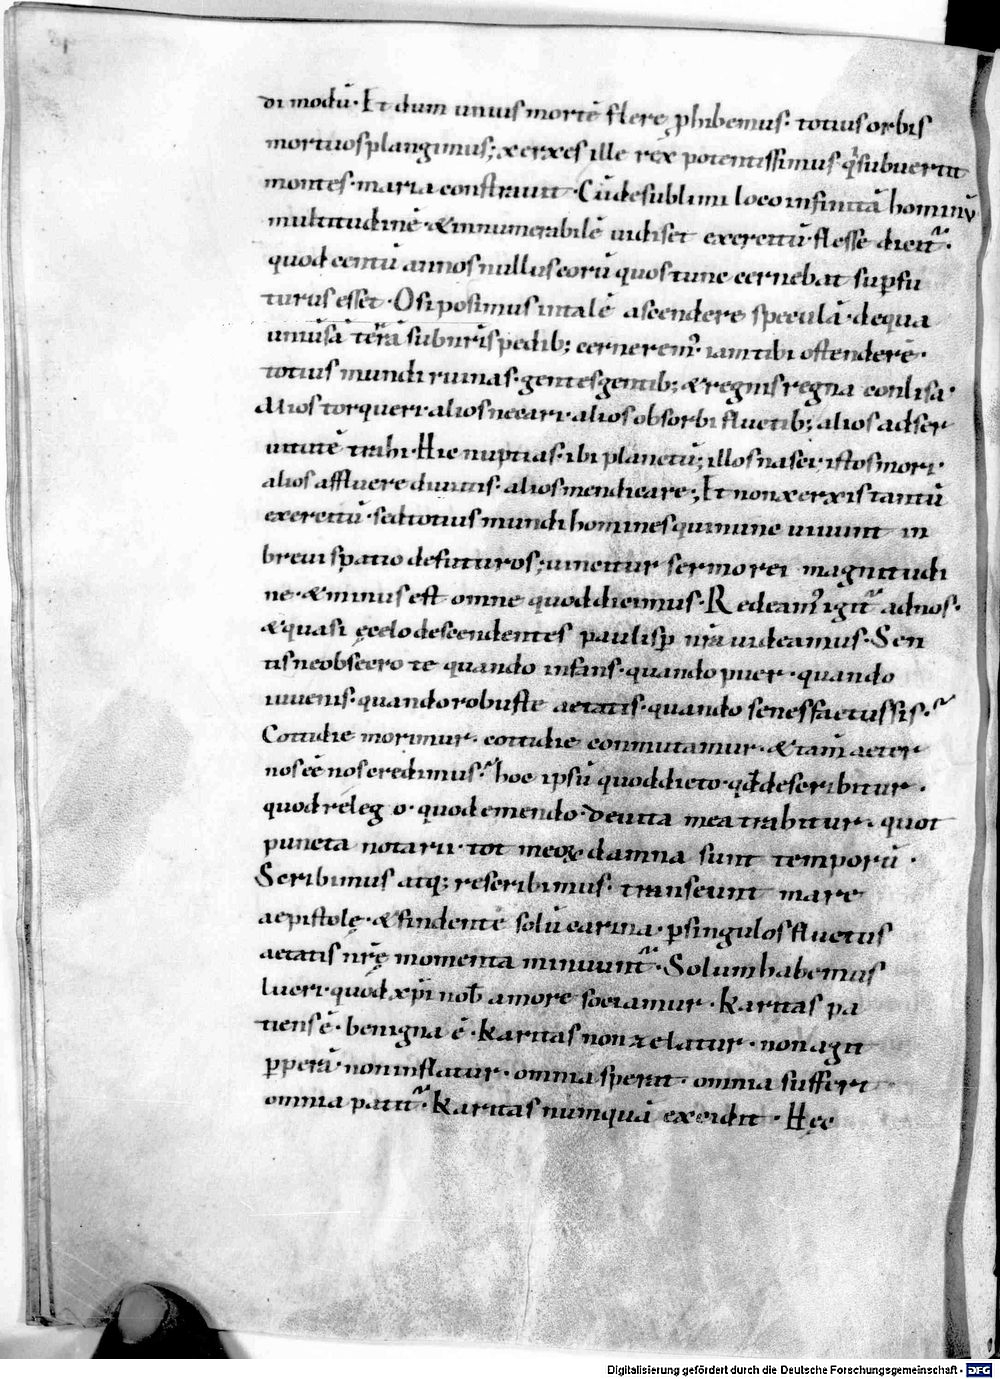 di modū· Et dum unius mortē flere ꝓhibemus· totius orbis
mortuos plangimus; xerxes ille rex potentissimus q̊ subuertit
montes· maria constravit· Cū de sublimi loco infinitā hominū
multitudinē· & innumerabilē uidiset exercitū· flesse dicit᷑·
quod centū annos nullus eorū quos tunc cernebat sup̄fu
turus esset· O si posimus in talē ascendere speculā· de qua
uniuersā terrā sub nr̄is pedib; cernerem᷒· iam tibi ostenderē·
totius mundi ruinas· gentes gentib; & regnis regna conlisa·
Alios torqueri· alios necari· alios obsorbi fluctib; alios ad ser
uitutē trahi· Hic nuptias· ibi planctū; illos nasci· istos mori·
alios affluere diuitiis· alios mendicare; Et non xerxis tantū
exercitū· sed totius mundi homines qui nunc uiuunt in
breui spatio defuturos; uincitur sermo rei magnitudi
ne· & minus est omne quod dicimus· Redeam᷒ igit᷑ ad nos·
& quasi ęcelo descendentes paulisp̄ nr̄a uideamus· Sen
tis ne obsecro te quando infans· quando puer· quando
iuuenis· quando robuste aetatis· quando senes factus sis·
Cottidie morimur· cottidie conmutamur· & tam̄ aeter
nos eē nos credimus· hoc ipsū quod dicto· qđ describitur·
quod releg o· quod emendo· de uita mea trahitur· quot
puncta notarii· tot meoꝝ damna sunt temporū·
Scribimus atq; rescribimus· transeunt mare
aepistolę· & findente solū carina· ꝑ singulos fluctus
aetatis nr̄ę momenta minuunt᷑· Solum habemus
lucri· quod xp̄i nob̄ amore sociamur· Karitas pa
tiens ē· benigna ē· Karitas non zelatur· non agit
ꝑperā· non inflatur· omnia sperit· omnia suffert
omnia patit᷑· Karitas numquā excidit· Hęc
Digitalisierung gefördert durch die Deutsche Forschungsgemeinschaft - DFG